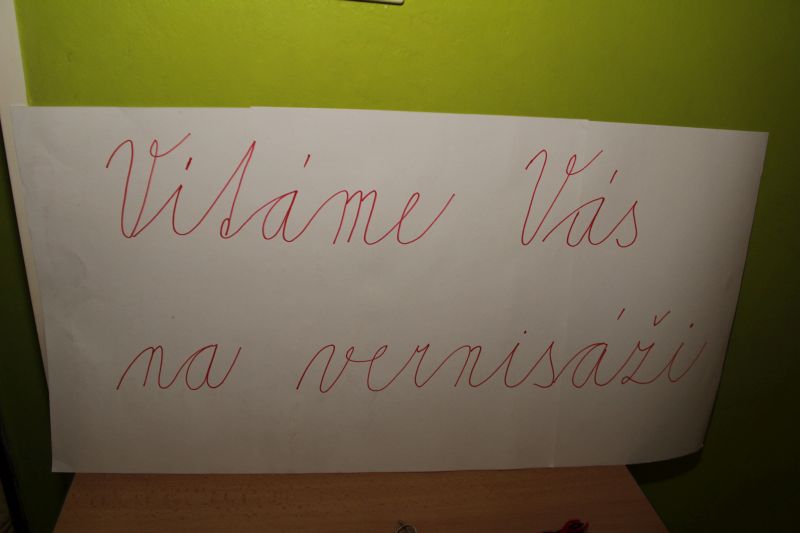 Vítáme Vás
na vernisáži